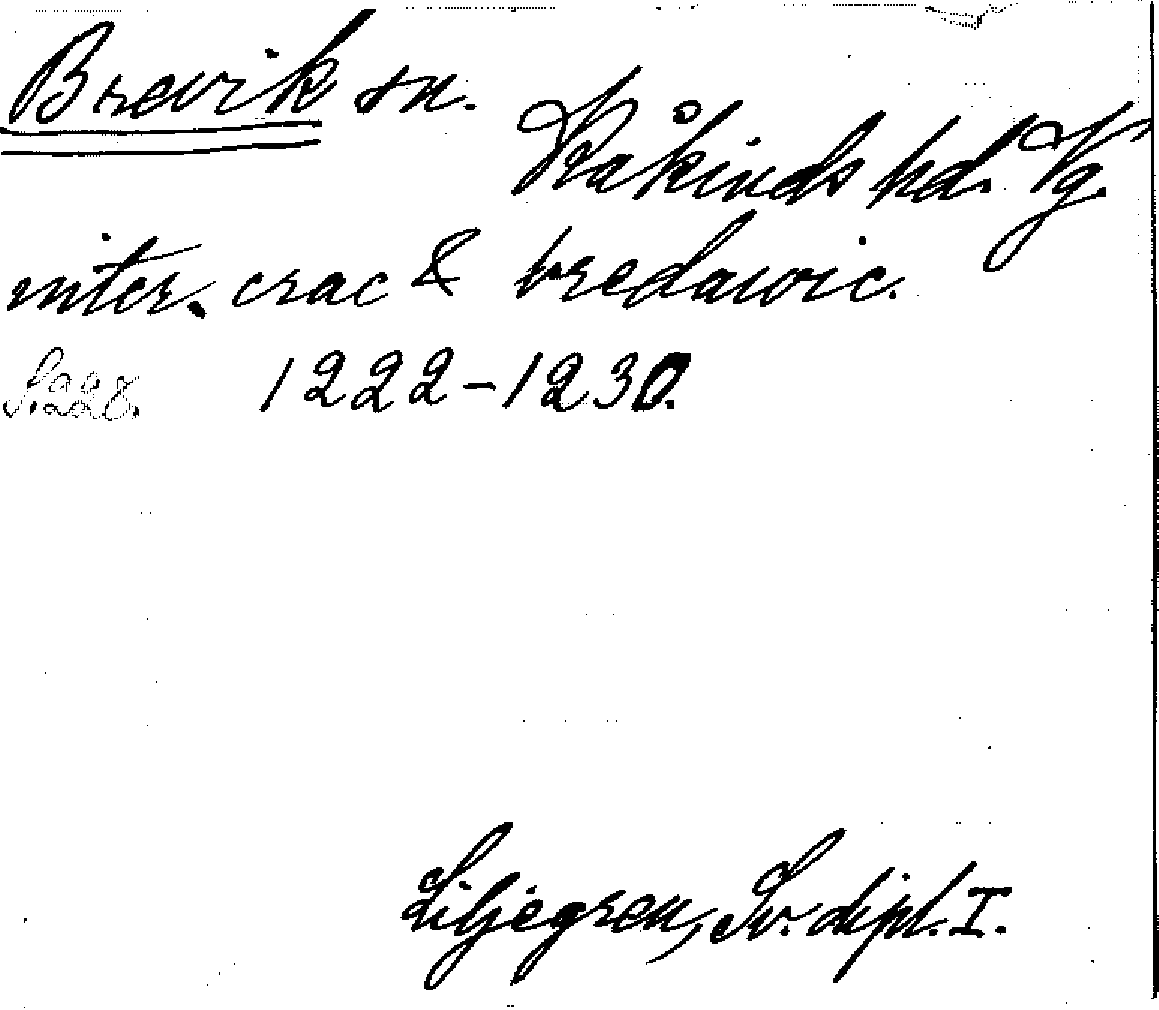 Brevik sn.
Kåkinds hd. Vg.
inter. crac & bredawic.
S. 228. 1222-1230.
Liljegren, Sv. dipl. I.